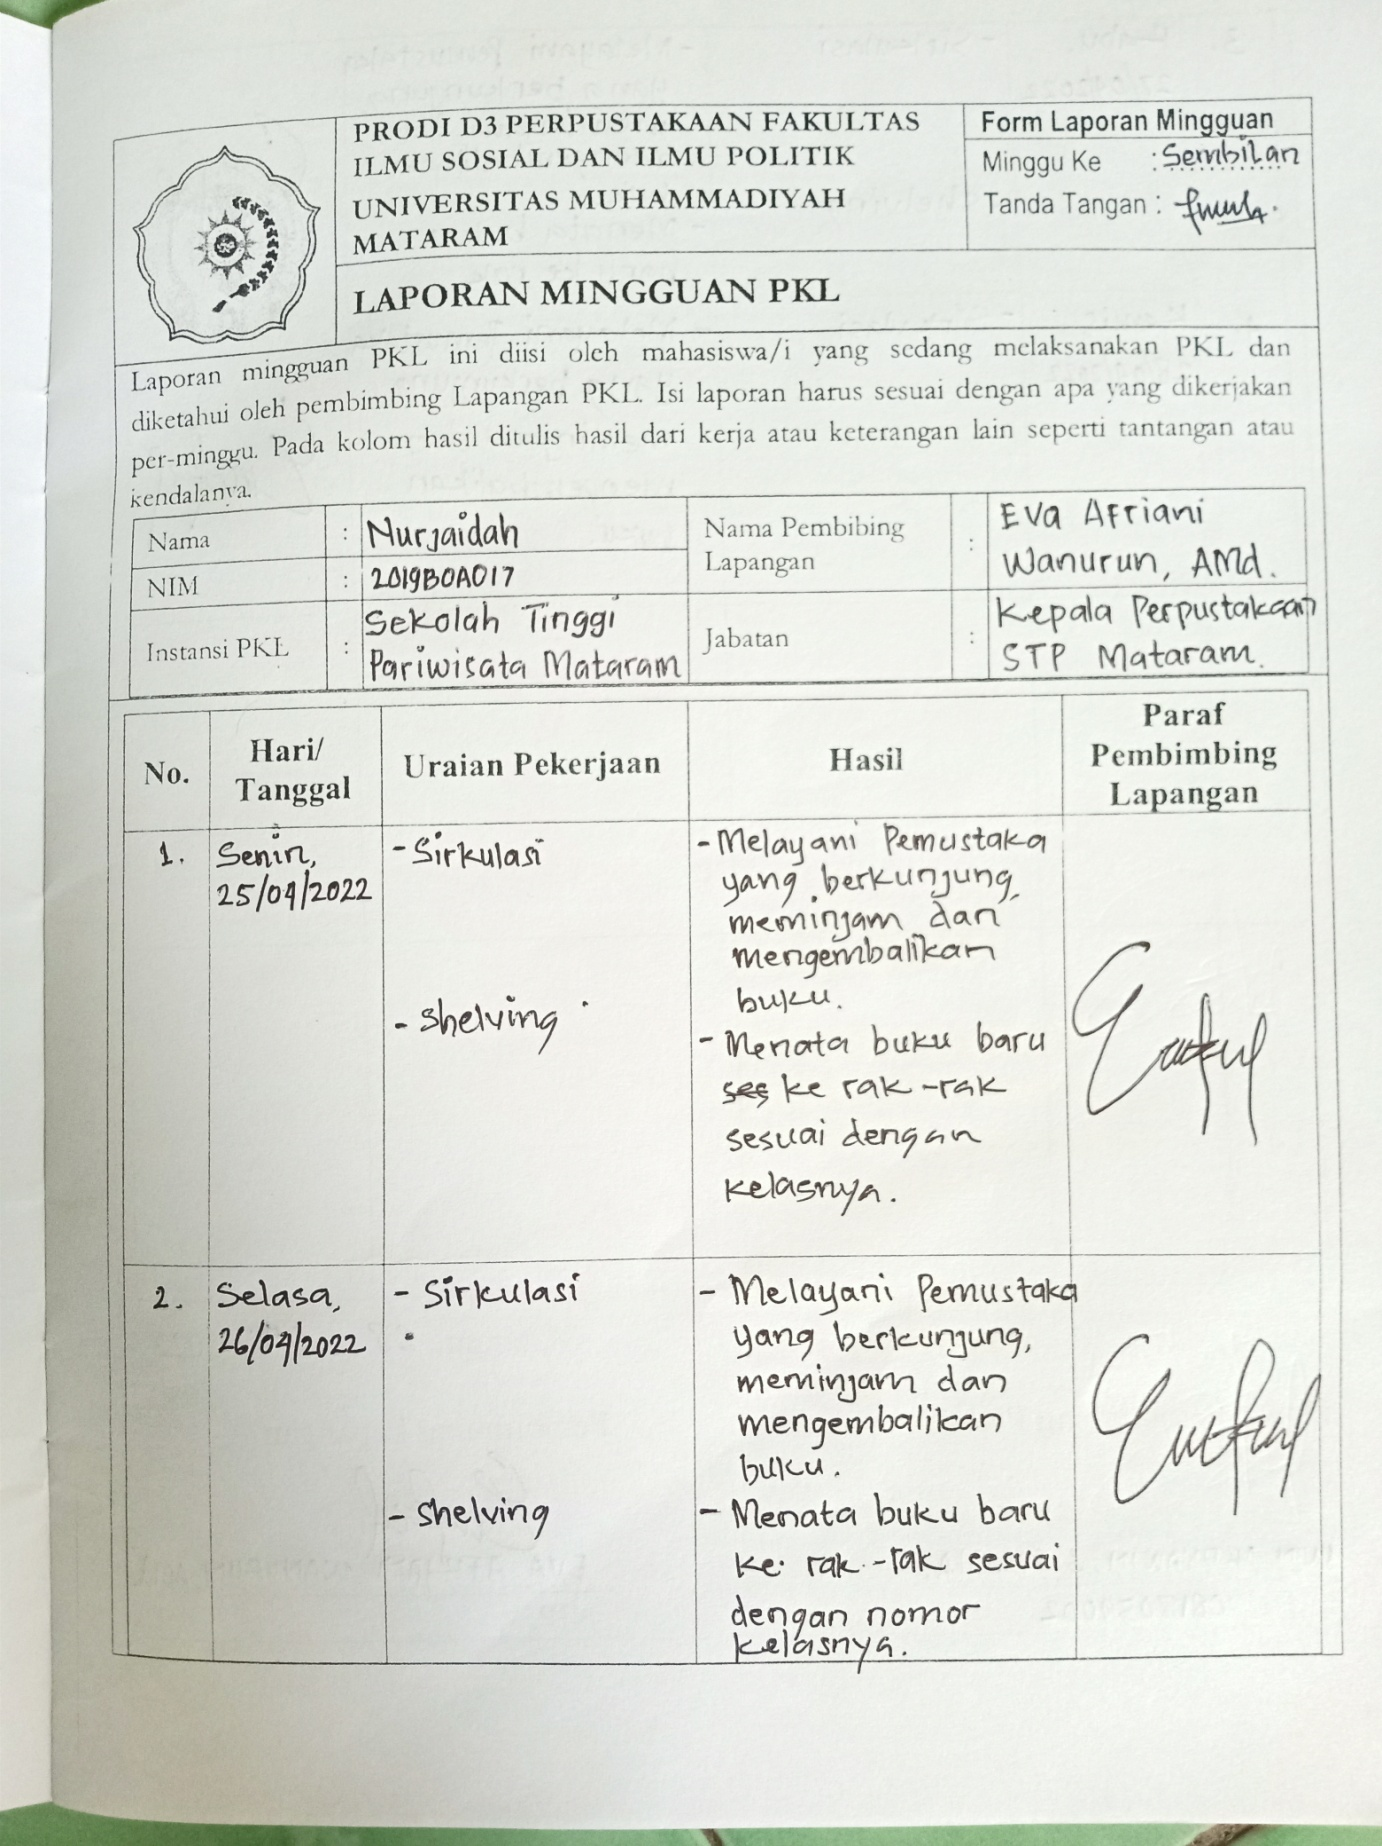 PRODI D3 PERPUSTAKAAN FAKULTAS
ILMU SOSIAL DAN ILMU POLITIK
UNIVERSITAS MUHAMMADIYAH
MATARAM
LAPORAN MINGGUAN PKL
Form Laporan Mingguan
Minggu Ke : Sembilan
Tanda Tangan :
Laporan mingguan PKL ini diisi oleh mahasiswa/i yang sedang melaksanakan PKL dan
diketahui oleh pembimbing Lapangan PKL. Isi laporan harus sesuai dengan apa yang dikerjakan
per-minggu. Pada kolom hasil ditulis hasil dari kerja atau keterangan lain seperti tantangan atau
kendalanya.
Nama : Nurjaidah
NIM : 2019B0A017
Instansi PKL : Sekolah Tinggi
Pariwisata Mataram
Nama Pembibing
Lapangan
: Eva Afriani
Wanurun, AMd.
Jabatan : Kepala Perpustakaan
STP Mataram.
No.
Hari/
Tanggal
Uraian Pekerjaan
Hasil
Paraf
Pembimbing
Lapangan
1.
Senin,
25/04/2022
- Sirkulasi
- Melayani Pemustaka
yang berkunjung,
meminjam dan
mengembalikan
buku.
- shelving
- Menata buku baru
ses ke rak-rak
sesuai dengan
kelasnya.
2.
Selasa,
26/04/2022
- Sirkulasi
- Melayani Pemustaka
yang berkunjung,
meminjam dan
mengembalikan
buku.
- shelving
- Menata buku baru
ke rak-rak sesuai
dengan nomor
kelasnya.